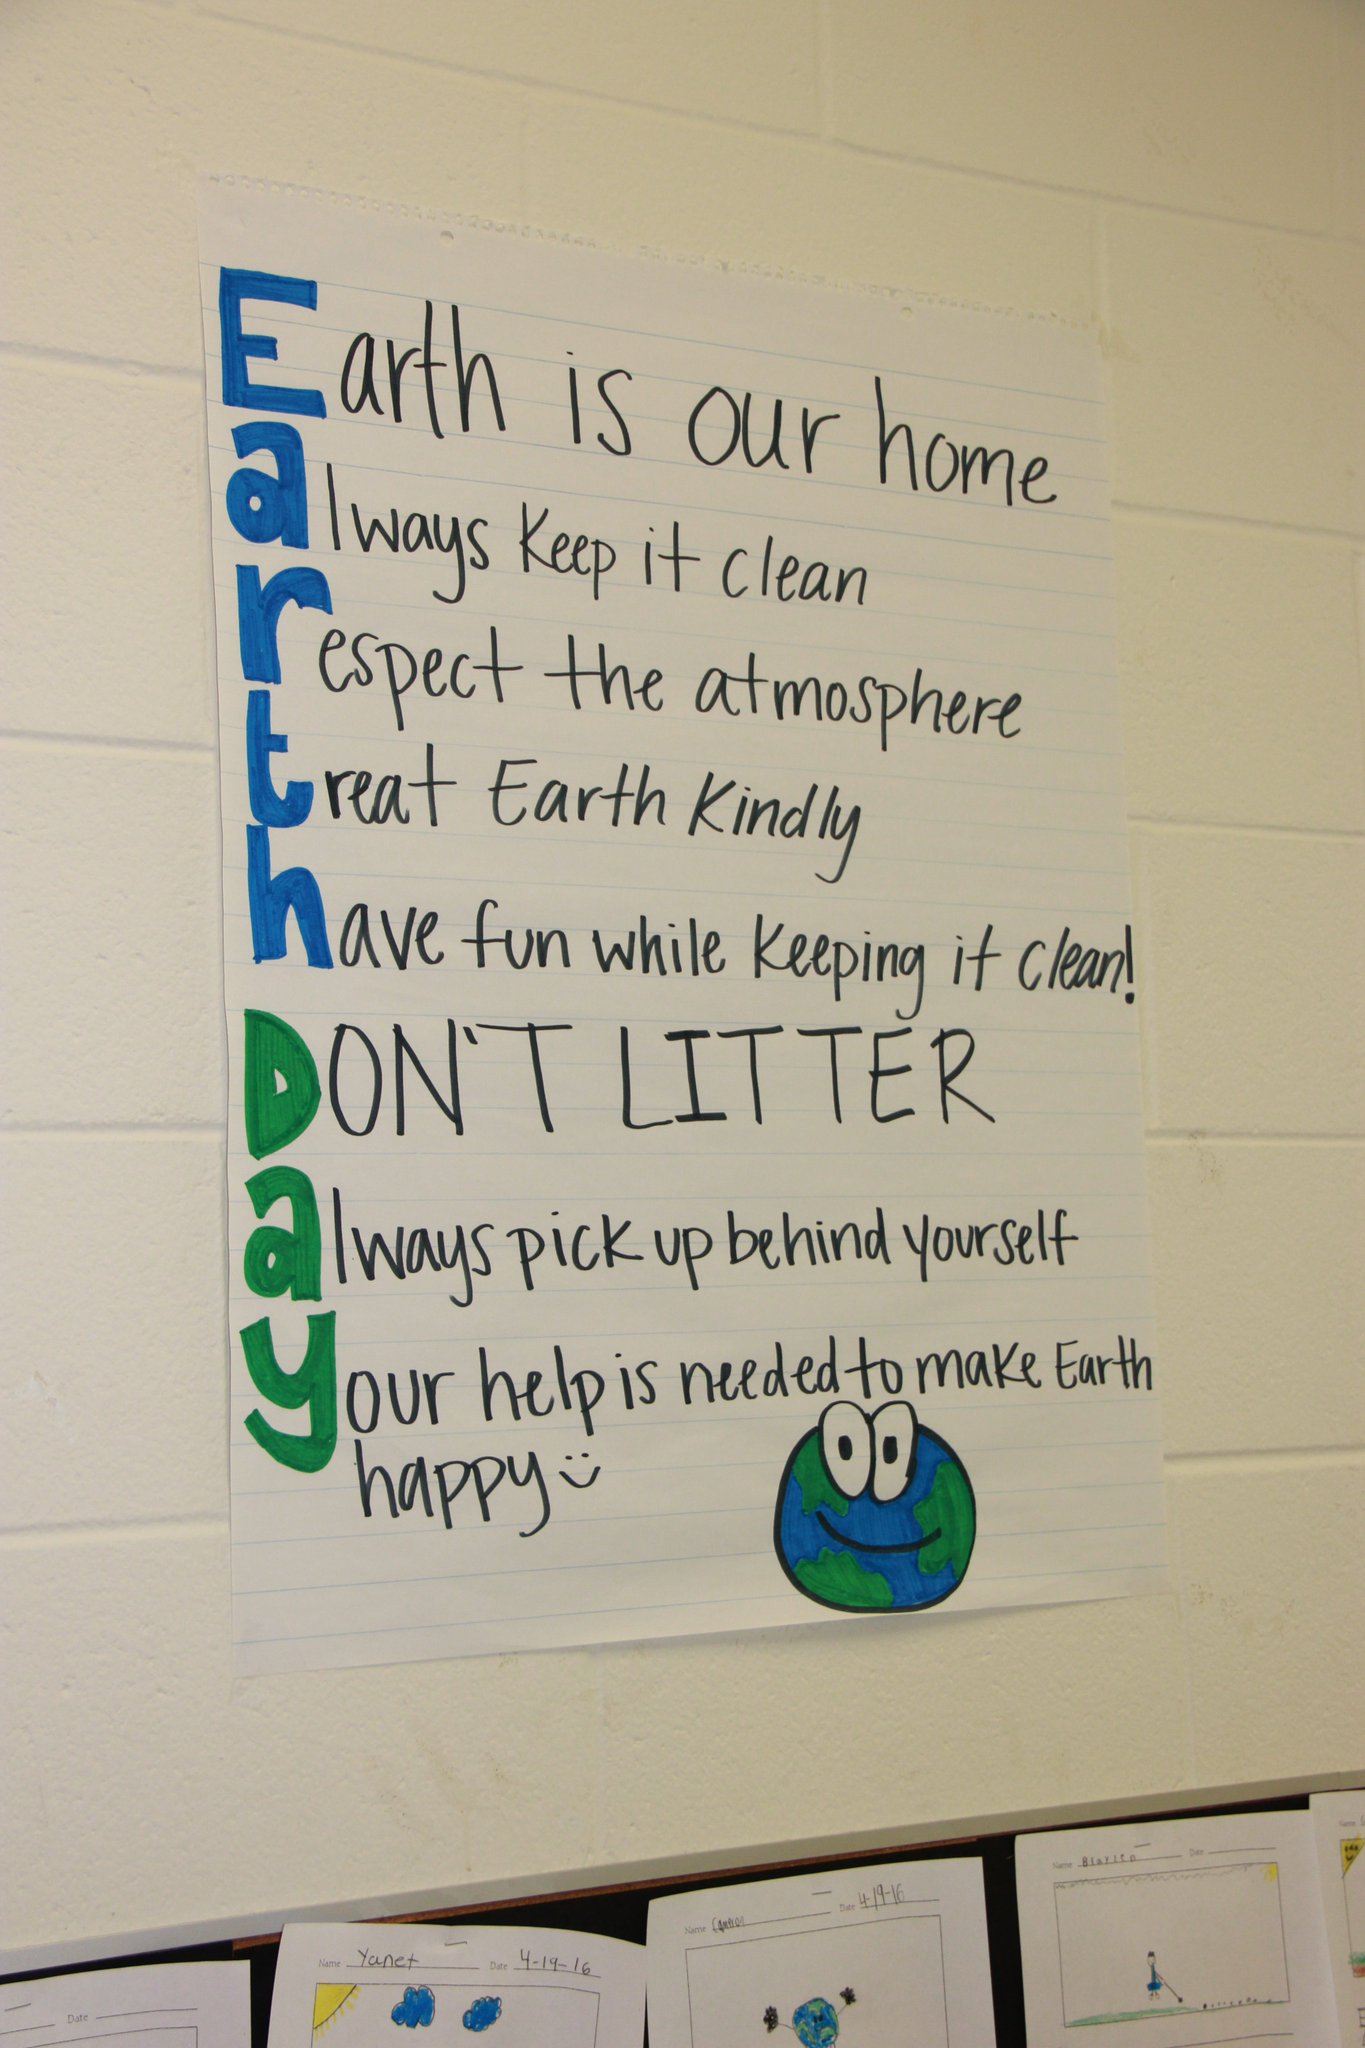 Earth is our home
always keep it clean
respect the atmosphere
treat Earth kindly
have fun while keeping it clean!
DON'T LITTER
always pick up behind yourself
your help is needed to make Earth
happy
Name Blaylen Date
Name Date 4/19-16
Name Yanet Date 4-19-16
Date